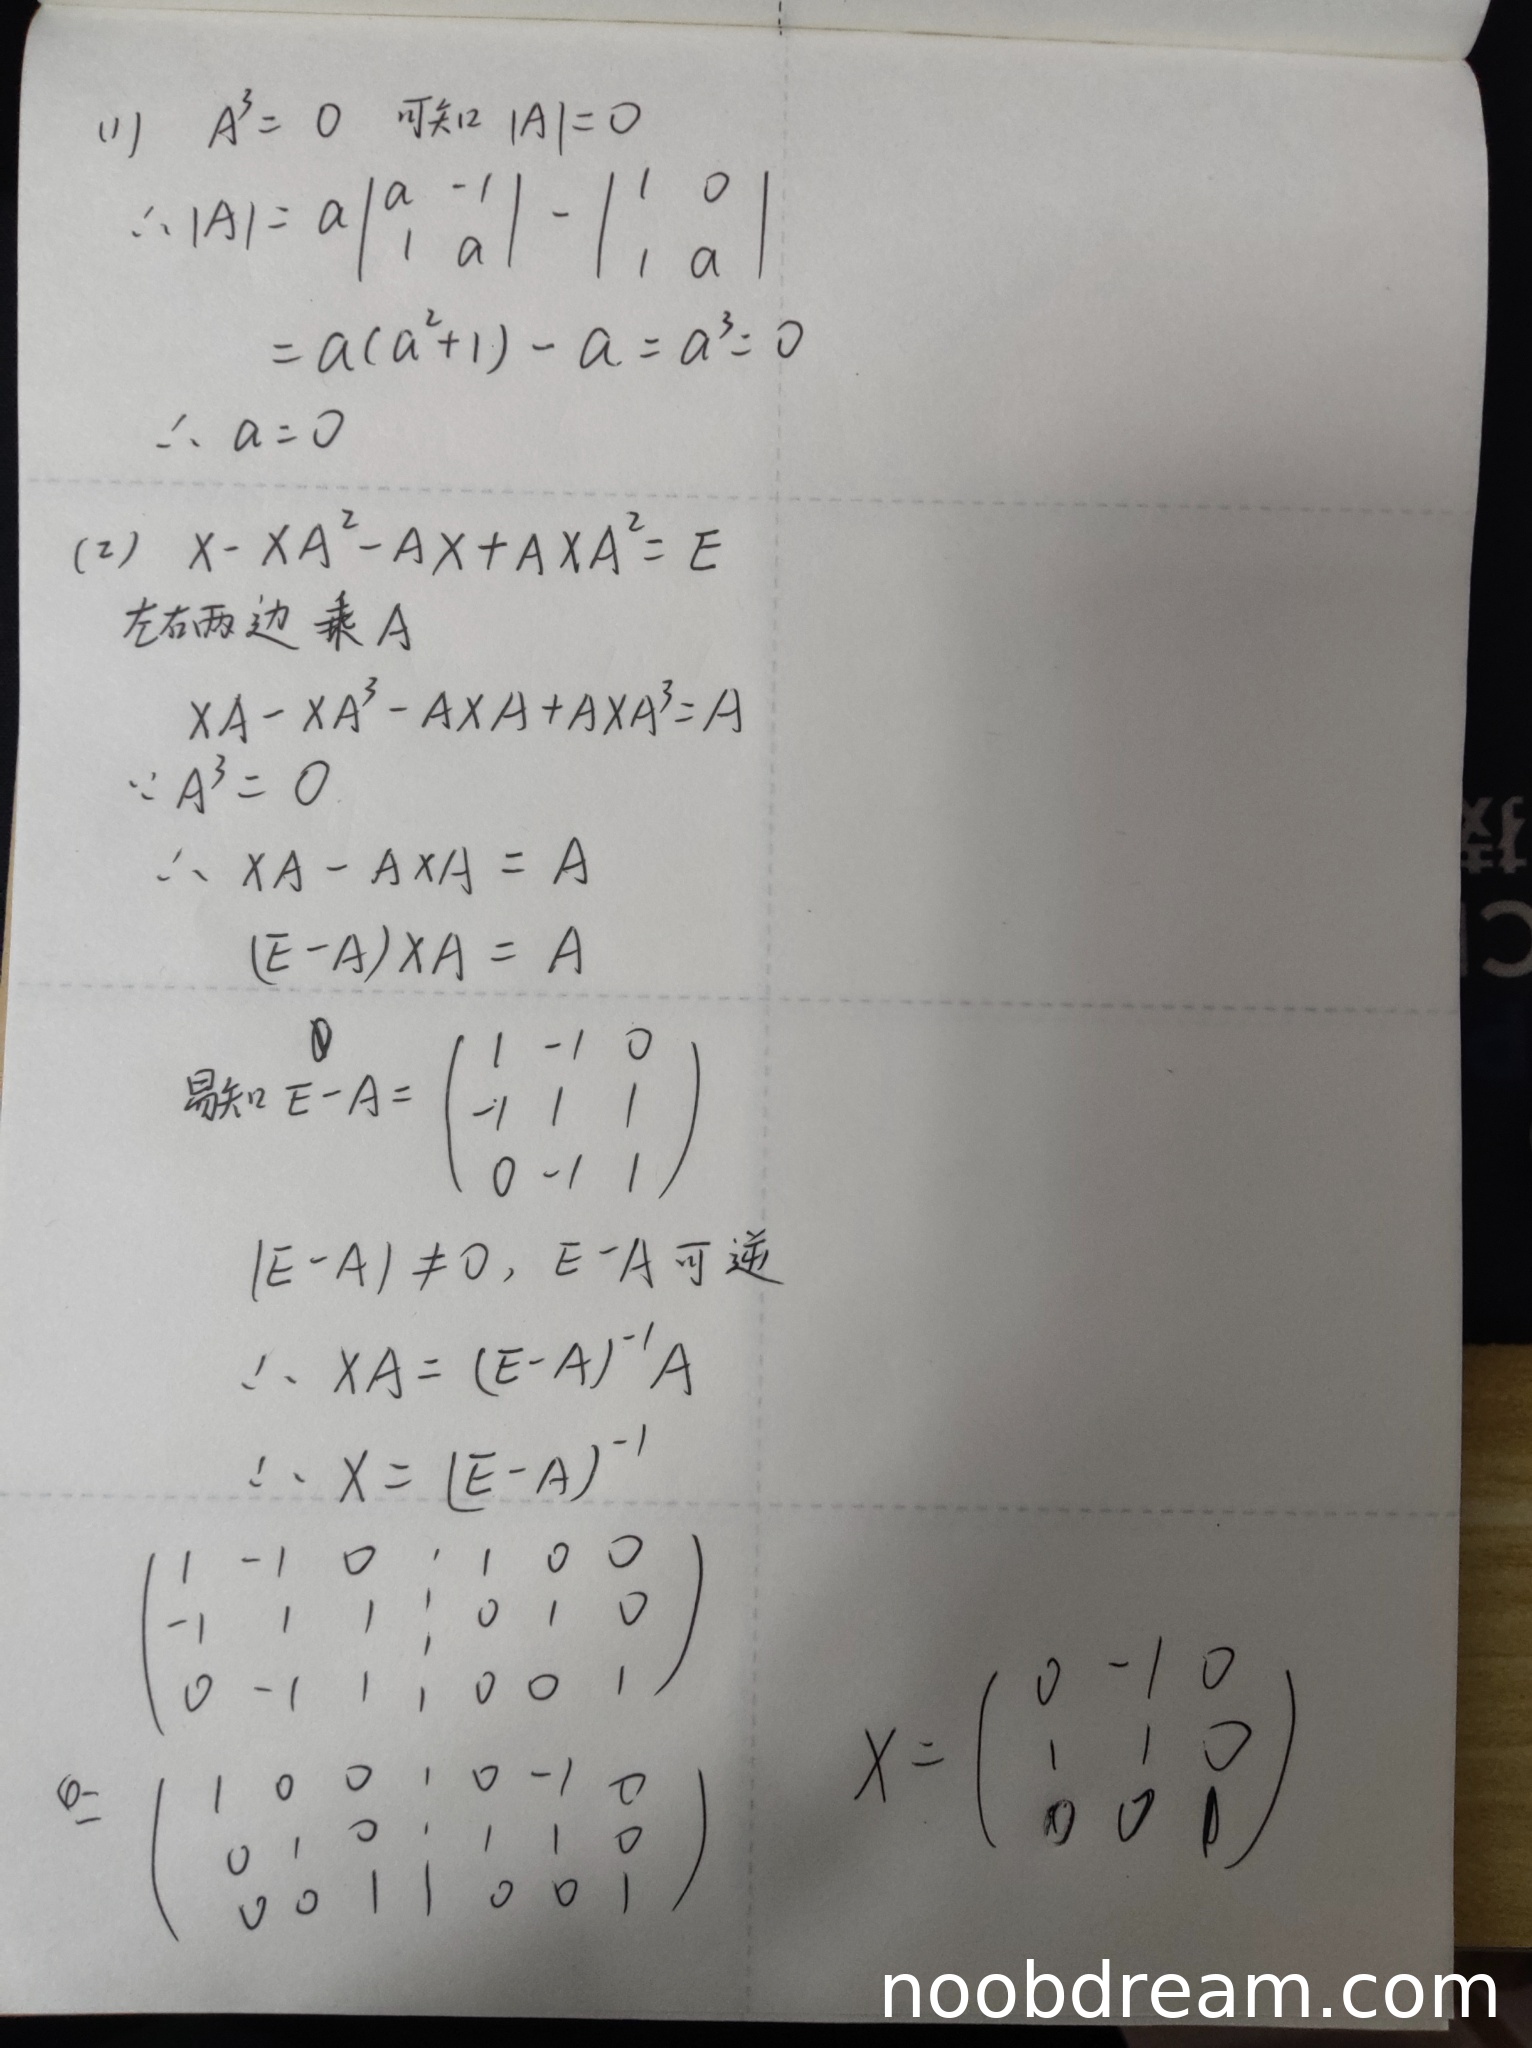 (1) A³ = 0 可知 |A| = 0
∴ |A| = a | a -1 | - | 1 0 |
| 1 a | | 1 a |
= a(a²+1) - a = a³ = 0
∴ a = 0
(2) X - XA² - AX + AXA² = E
左右两边乘A
XA - XA³ - AXA + AXA³ = A
∵ A³ = 0
∴ XA - AXA = A
(E-A)XA = A
易知 E-A = ( 1 -1 0
-1 1 1
0 -1 1 )
|E-A| ≠ 0, E-A 可逆
∴ XA = (E-A)⁻¹A
∴ X = (E-A)⁻¹
( 1 -1 0 ¦ 1 0 0
-1 1 1 ¦ 0 1 0
0 -1 1 ¦ 0 0 1 )
( 1 0 0 ¦ 0 -1 0
0 1 0 ¦ 1 1 0
0 0 1 | 0 0 1 )
X = ( 0 -1 0
1 1 0
0 0 1 )
noobdream.com